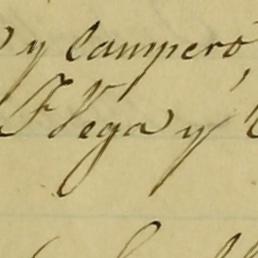 y Campero
F Vega y